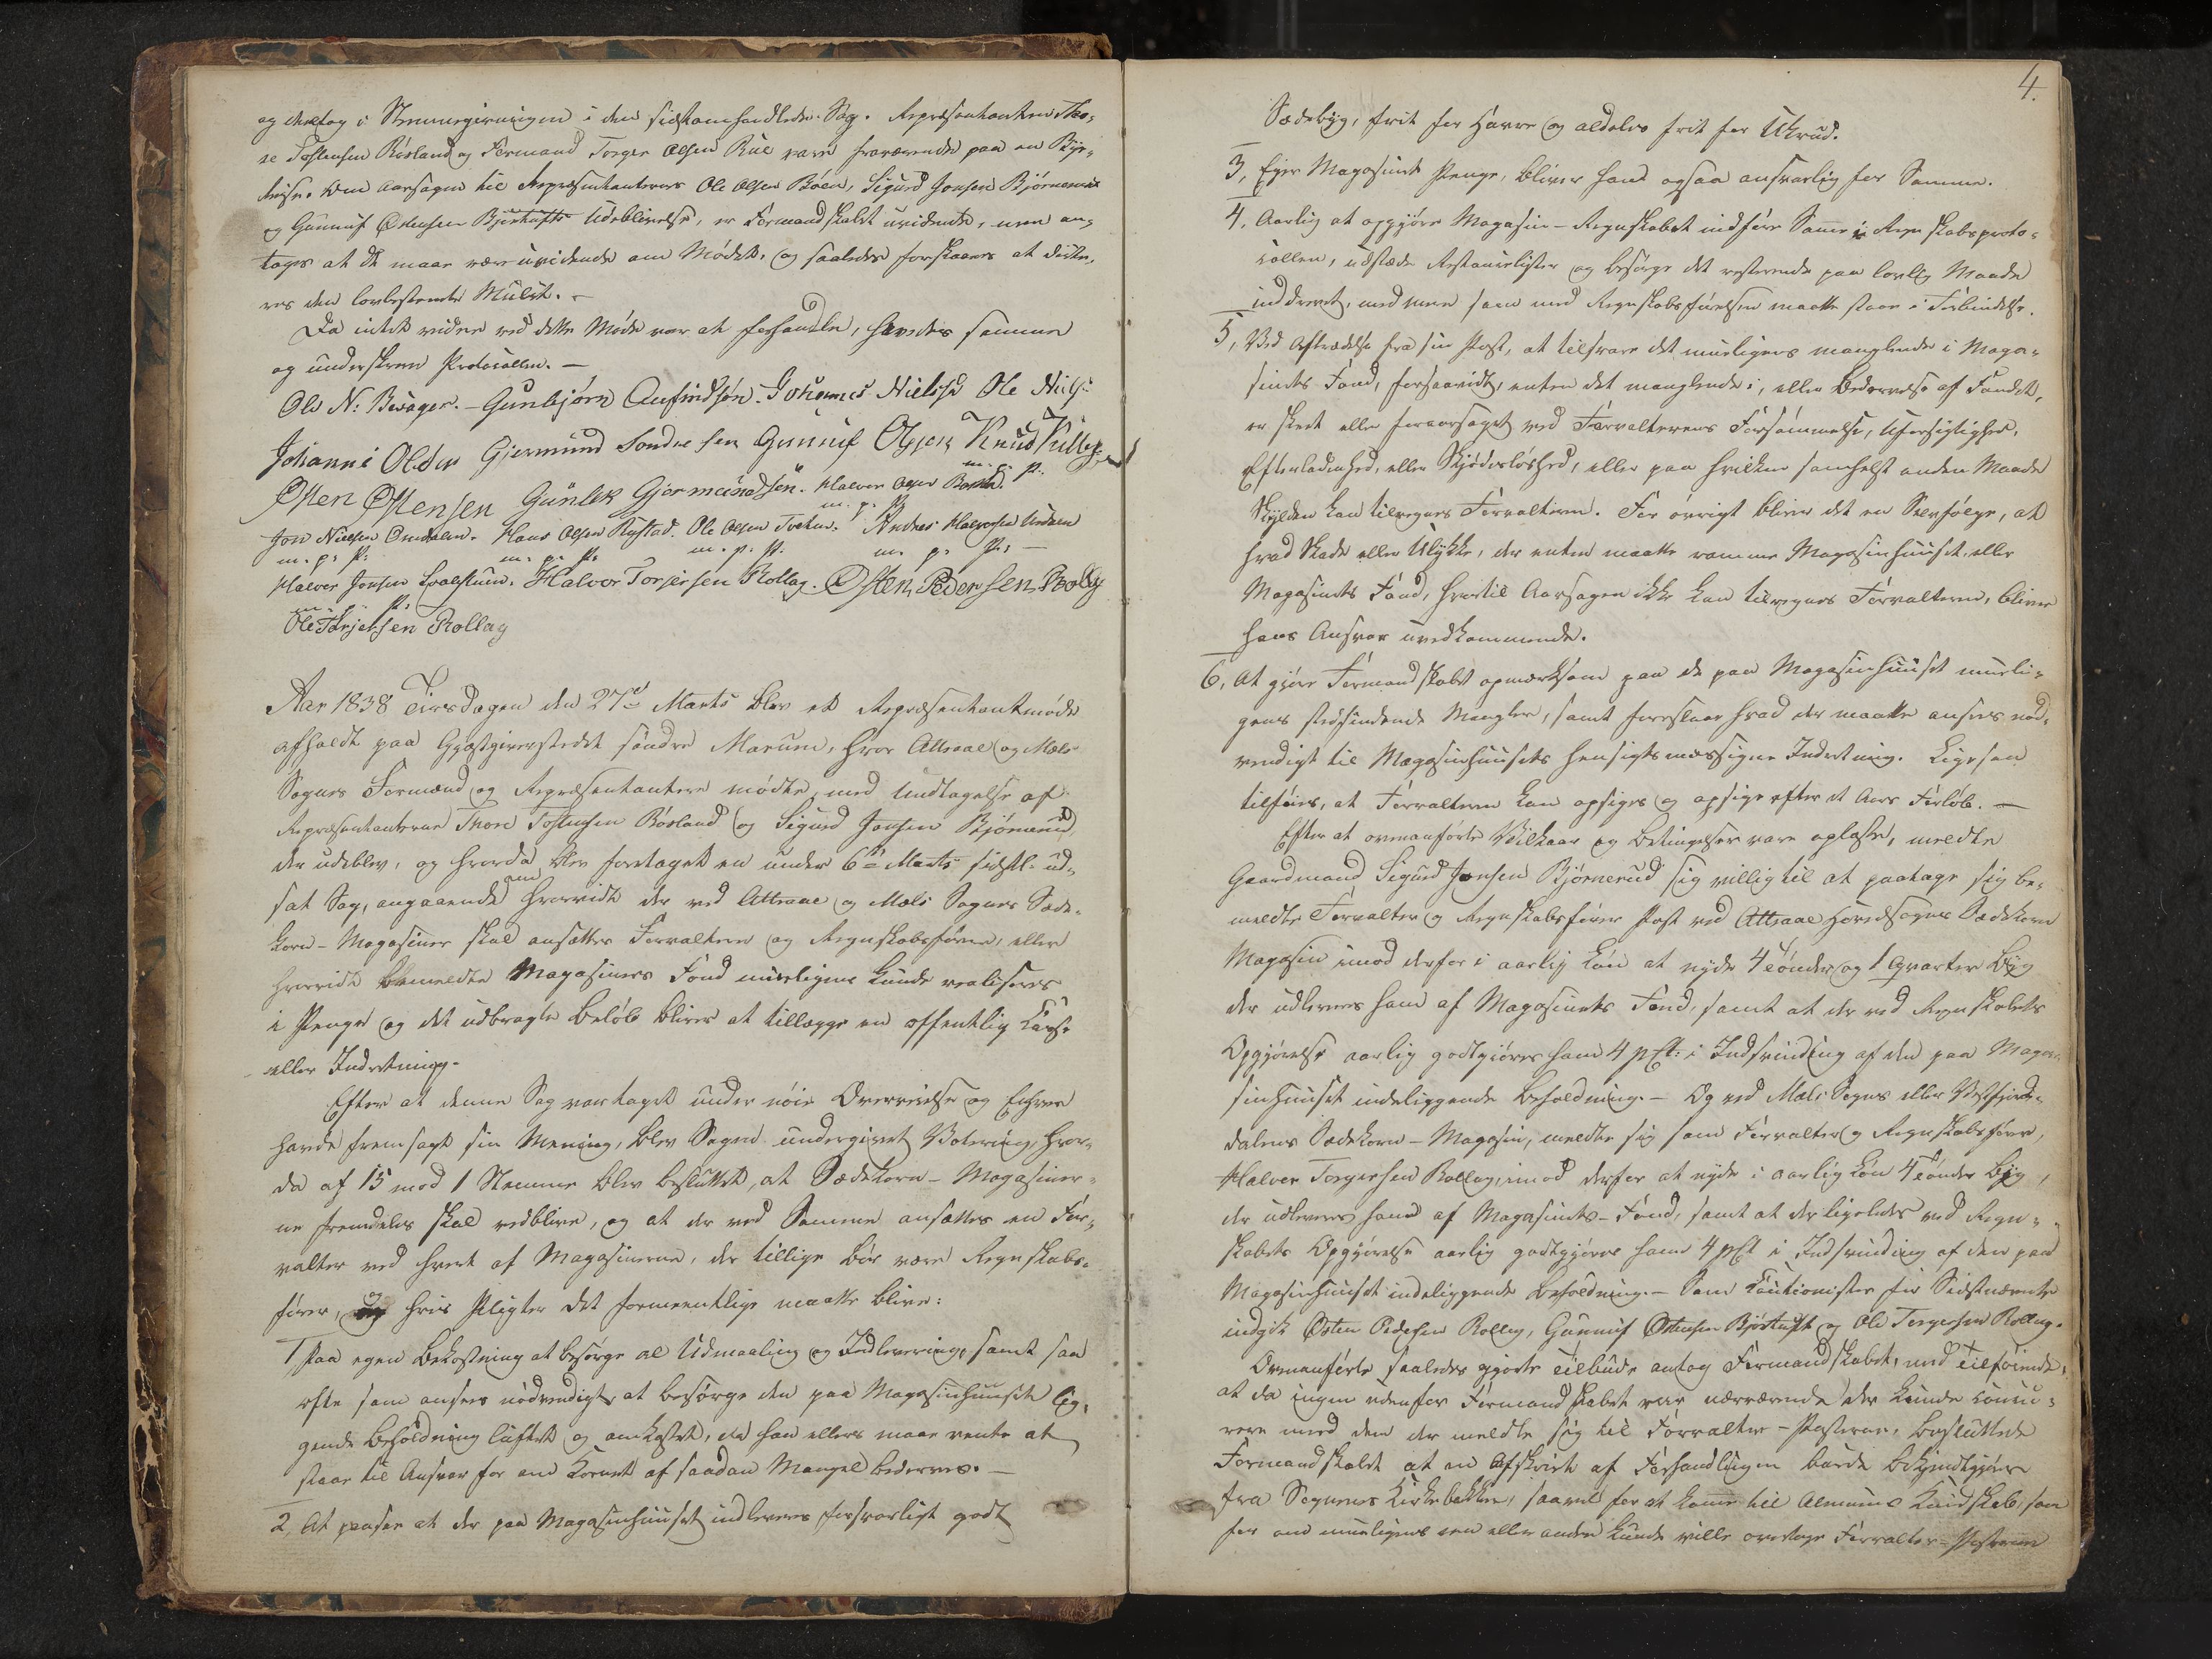 og deeltog i Stemmegivningen i den sidstomhandlede Sag. Repræsentanten Tho-
re Tostensen Rosland og Formand Torger Olsen Rue vare fraværende paa en Byr-
reise. Om Aarsagen til Repræsentanternes Ole Olsen Böen, Sigurd Jonsen Björnerud
og Gunnuf Östensen Bjortufts Udeblivelse, er Formandskabet uvidende, men an-
tages at de maae være uvidende om Mödet, og saaledes forskaanes at dicte-
res den lovbestemte Mulct. -
Da intet videre ved dette Möde var at forhandle, hævedes samme
og underskrev Protocollen. -
Ole N: Bernager. - Gunbjörn Anfindsön. Johannes Nielse Ole Niels:
Johanne Olsen Gjermund Sondresen Gunnuf Olsen Knud
Östen Östensen Gunlek Gjermundsön. Halvor Olsen m. p. P.
Jon Nielsen Omdalen. Hans Olsen Rustad. Ole Olsen Tveten. Andres Halvorsen
m. p. P. m. p. P. m. p. P. m. p. P. -
Halvor Jonsen Halvor Torjersen Rollag. Østen Pedersen Rollag
m. p. P.
Ole Torjersen Rollag
Aar 1838 Tirsdagen den 27de Marts blev et Repræsentantmöde
afholdt paa Gjæstgiverstedet söndre Marum, hvor Attraae og Mæls
Sognes Formænd og Repræsentantere mödte, med Undtagelse af
Repræsentanterne Thore Tostensen Rosland og Sigurd Jonsen Björnerud,
der udeblev, og hvorda blev foretaget en under 6te Marts sidstl. ud-
sat Sag, angaaende om hvorvidt der ved Attraae og Mæls Sognes Sæde-
korn-Magasiner skal ansættes Forvaltere og Regnskabsförere, eller
hvorvidt bemeldte Magasiners Fond muligens kunde realiseres
i Penge og det udbragte Belöb bliver at tillægge en offentlig Casse
eller Indretning.
Efter at denne Sag var taget under nöie Overveielse og Enhver
havde fremsagt sin Mening, blev Sagen undergivet Votering, hvor-
da af 15 mod 1 Stemme blev besluttet, at Sædekorn-Magasiner-
ne fremdeles skal vedblive, og at der ved Samme ansættes en For-
valter ved hvert af Magasinerne, der tillige bör være Regnskabs-
förer, og hvis Pligter det formeentlige maatte blive:
1, Paa egen Bekostning at besörge al Udmaaling og Indlevering, samt saa
ofte som ansees nödvendigt, at besörge den paa Magasinhuuset lig-
gende Beholdning luftet og omkastet, da han ellers maae vente at
staae til Ansvar for om Kornet af saadan Mangel bedærves. -
2, At paasee at der paa Magasinhuuset indleveres forsvarligt godt
4.
Sædebyg, frit for Havre og aldeles frit for Ukrud.
3, Eier Magasinet Penge, bliver han ogsaa ansvarlig for Samme.
4, Aarlig at opgjöre Magasin-Regnskabet indföre Samme i Regnskabsproto-
collen, udstæde Restancelister og besörge det resterende paa lovlig Maade
inddrevet, med mere som med Regnskabsförelsen maatte staae i Forbindelse.
5, Ved Aftrædelse fra sin Post, at tilsvare det muligens manglende i Maga-
sinets Fond, forsaavidt, enten det manglende, eller Bedærvelse af Fondet,
er skeet eller foraarsaget ved Forvalterens Forsömmelse, Uforsigtighed,
Efterladenhed, eller Skjödeslöshed, eller paa hvilken somhelst anden Maade
Skylden kan tilregnes Forvalteren. For övrigt bliver det en Selvfölge, at
hvad Skade eller Ulykke, der enten maatte ramme Magasinhuuset eller
Magasinets Fond, hvortil Aarsagen ikke kan tilregnes Forvalteren, bliver
hans Ansvar uvedkommende.
6, At gjöre Formandskabet opmærksom paa de paa Magasinhuuset muli-
gens stedfindende Mangler, samt foreslaae hvad der maatte ansees nöd-
vendigt til Magasinhuusets hensigtsmæssigere Indretning. Ligesaa
tilföies, at Forvalteren kan opsiges og opsige efter et Aars Forlöb. -
Efter at ovenanförte Vilkaar og Betingelser vare oplæste, meldte
Gaardmand Sigurd Jonsen Björnerud sig villig til at paatage sig be-
meldte Forvalter og Regnskabsförer Post ved Attraae Hovedsogns Sædekorn
Magasin imod derfor i aarlig Lön at nyde 4 Tönder og 1 Qvarter Byg
der udleveres ham af Magasinets Fond, samt at der ved Regnskabets
Opgjörelse aarlig godtgjöres ham 4 pCt: i Indsvinding af den paa Maga-
sinhuuset indeliggende Beholdning. - Og ved Mæls Sogns eller Vestfjord-
dalens Sædekorn-Magasin, meldte sig som Forvalter og Regnskabsförer,
Halvor Torgersen Rollag, imod derfor at nyde i aarlig Lön 4 Tönder Byg,
der udleveres ham af Magasinets-Fond, samt at der ligeledes ved Regn-
skabets Opgjörelse aarlig godtgjöres ham 4 pCt i Indsvinding af den paa
Magasinhuuset indeliggende Beholdning. - Som Cautionister for Sidstnævnte
indgik Östen Pedersen Rollag, Gunnuf Östensen Bjortuft og Ole Torgersen Rollag.
Ovenanförte saaledes gjorte Tilbude antog Formandskabet, med Tilföiende,
at da ingen udenfor Formandskabet var nærværende der kunde concur-
rere med dem der meldte sig til Forvalter-Posterne, besluttede
Formandskabet at en Afskrivt af Forhandlingen burde bekjendtgjöres
fra Sognenes Kirkebakker, saavel for at komme til Almeens Kundskab, som
for om muligens een eller anden kunde ville overtage Forvalter-Posterne